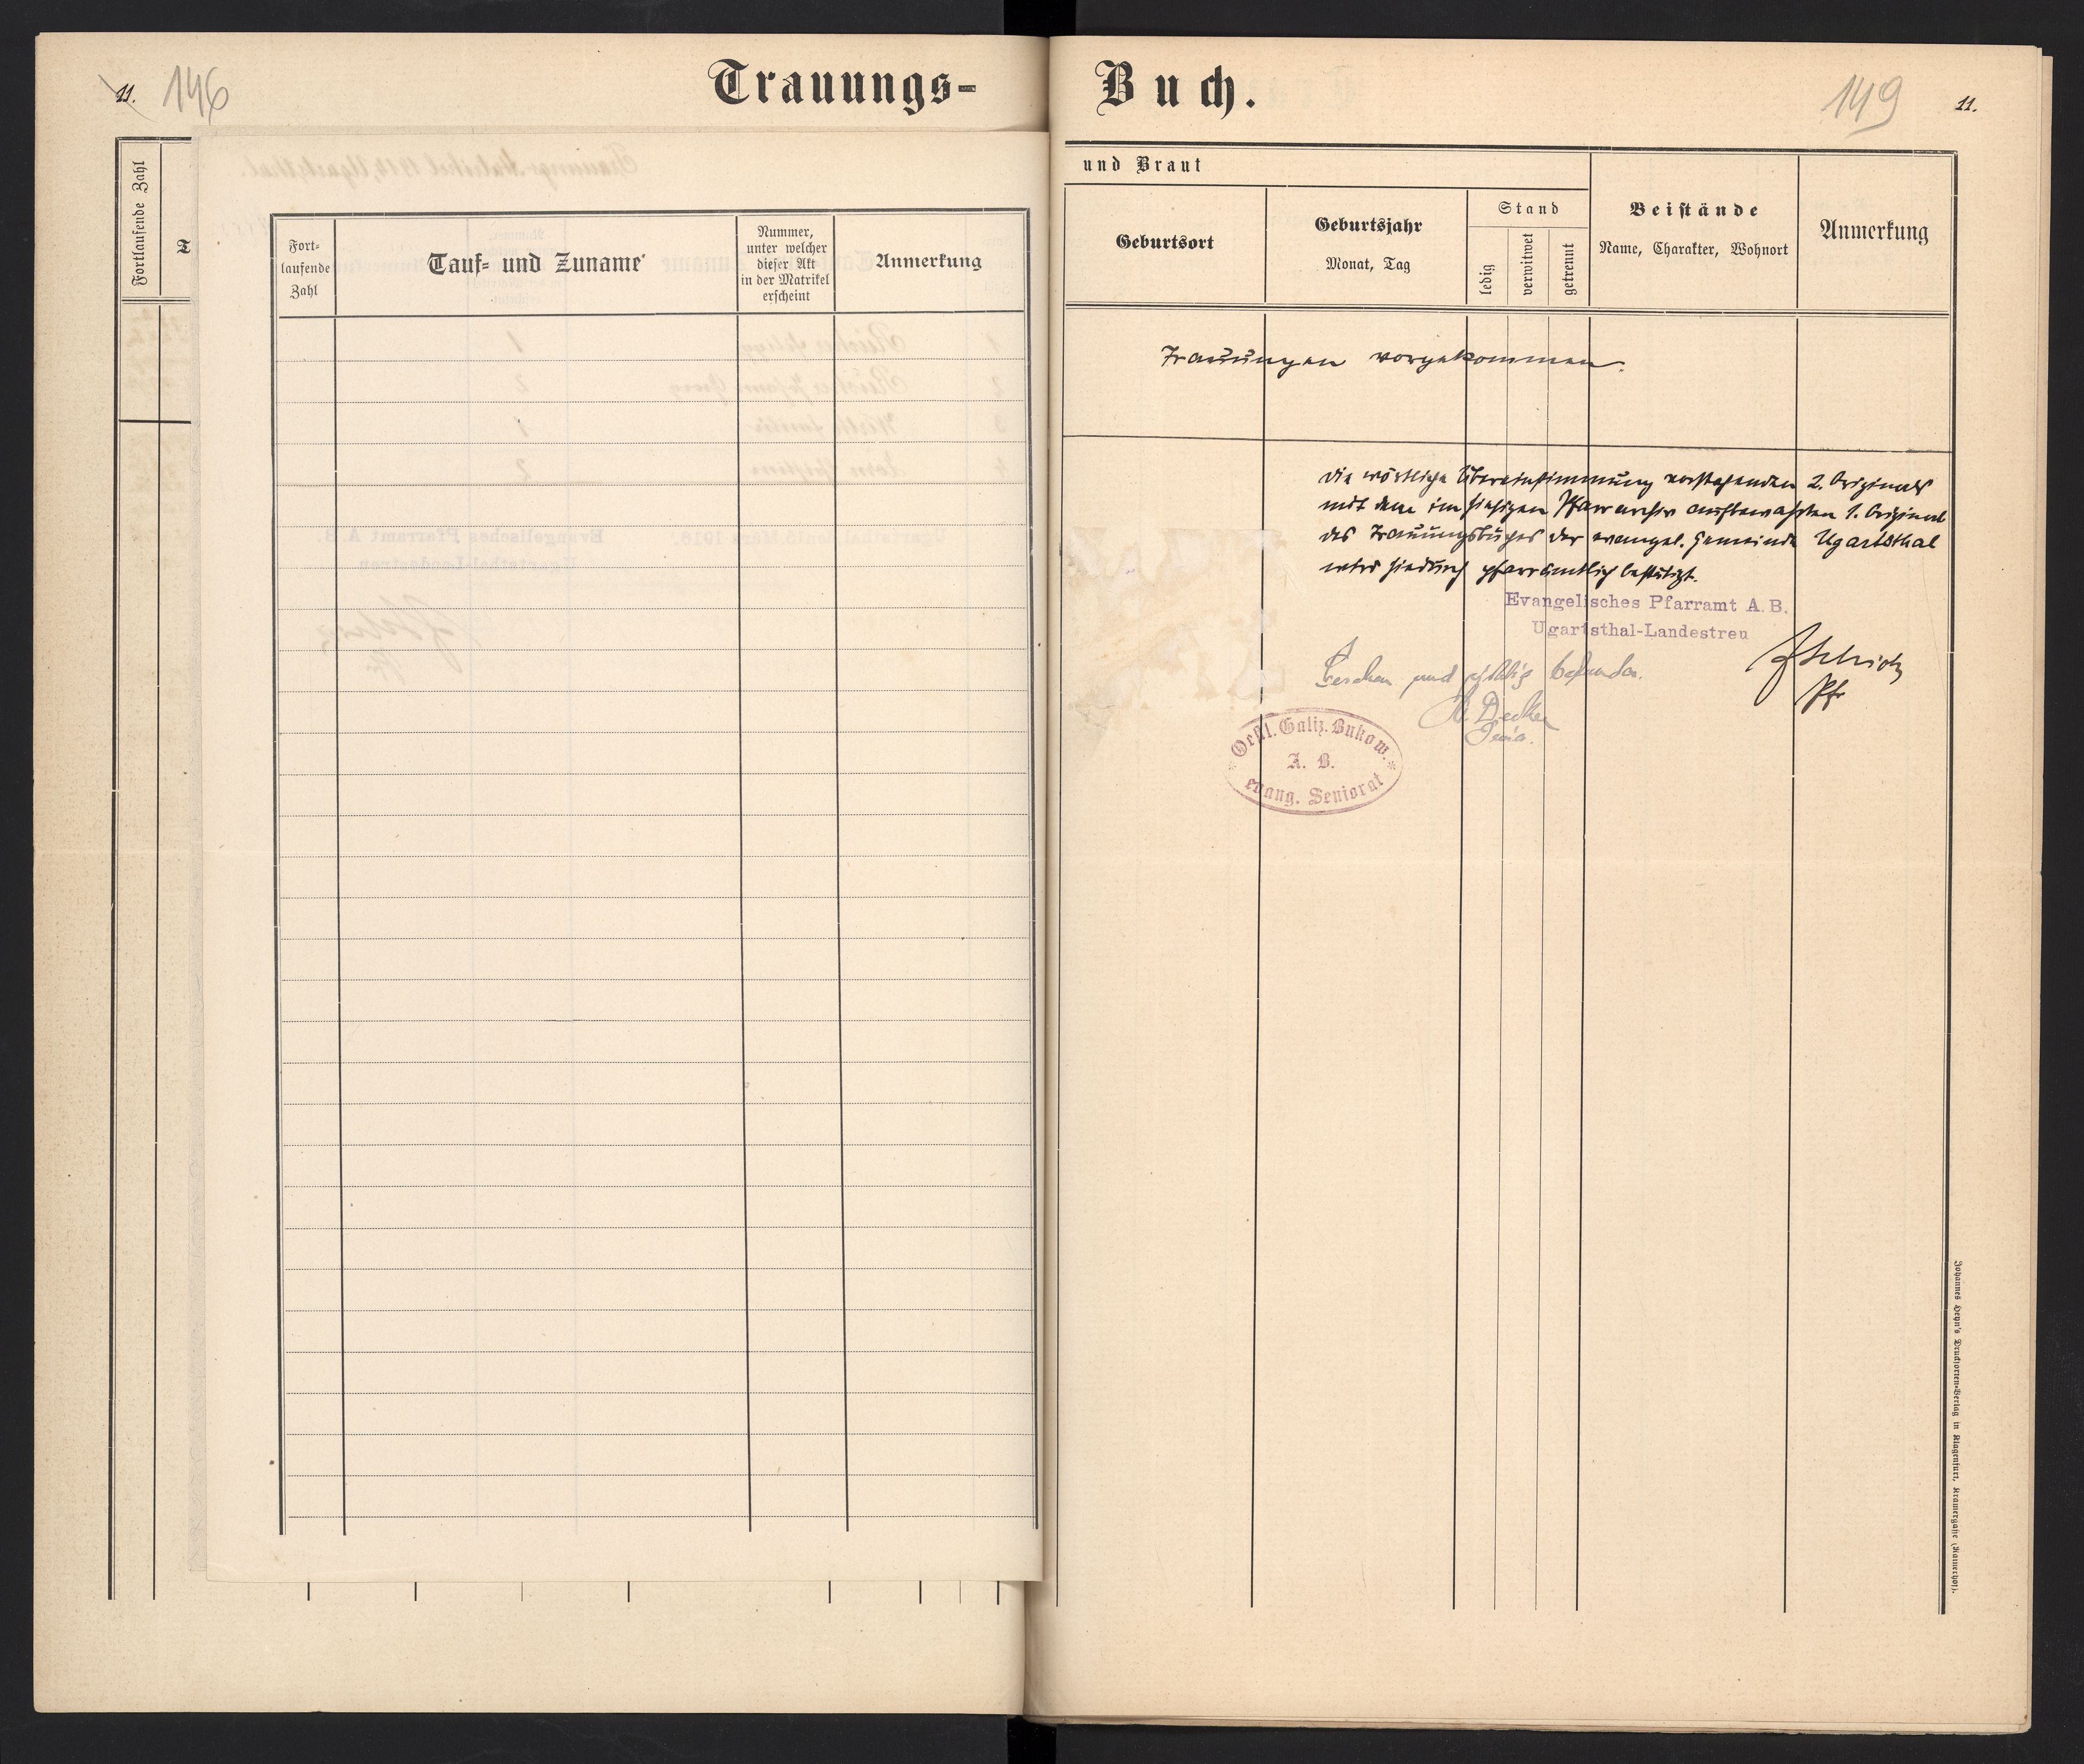 11. 146
Trauungs-
Fortlaufende Zahl
T
Fort-
laufende
Zahl
Tauf- und Zuname
Nummer,
unter welcher
dieser Akt
in der Matrikel
erscheint
Anmerkung
Buch.
149 11.
und Braut
Geburtsort
Geburtsjahr
Monat, Tag
Stand
ledig
verwitwet
getrennt
Beistände
Name, Charakter, Wohnort
Anmerkung
Trauungen vorgekommen.
Die wörtliche Übereinstimmung vorstehenden 2. Originals
mit dem im hiesigen Pfarrarchiv aufbewahrten 1. Original
des Trauungsbuches der evangel. Gemeinde Ugartsthal
wird hiedurch pfarrämtlich bestätigt.
Evangelisches Pfarramt A. B.
Ugartsthal-Landestreu
Pfr
Gesehen und richtig befunden.
Decker
Senior.
Oestl. Galiz. Bukow.
A. B.
evang. Seniorat
Johannes Heyn's Drucksorten-Verlag in Klagenfurt, Kramergasse